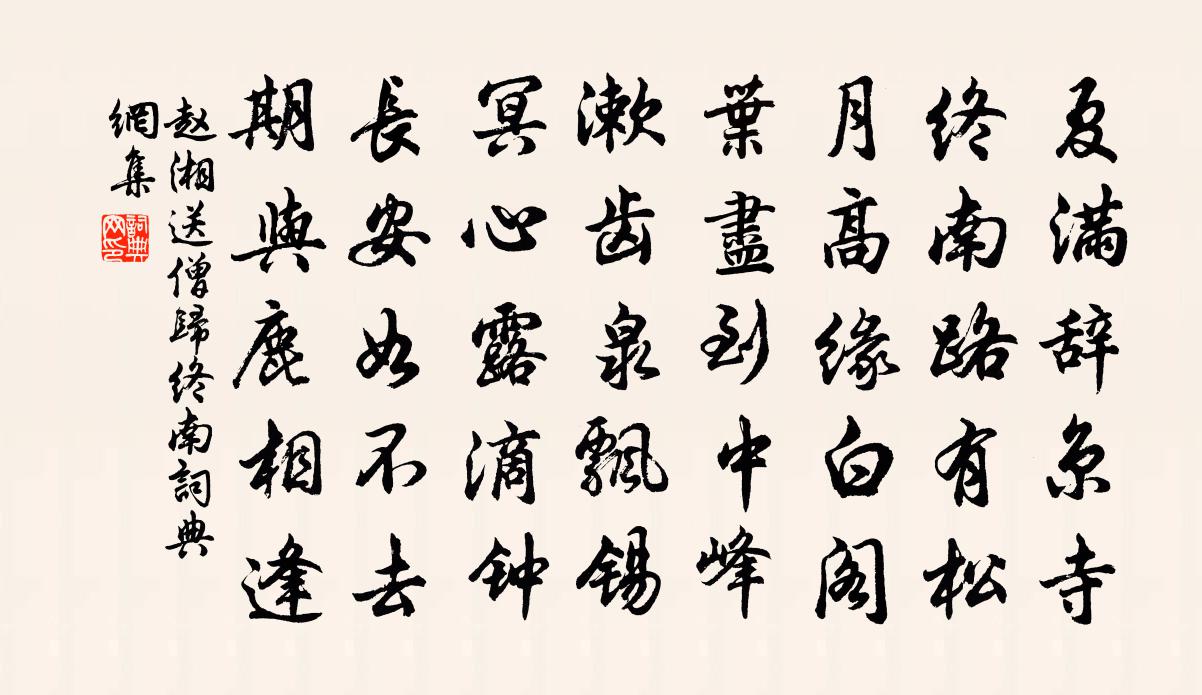 夏滿辞京寺
终南路有松
月高缘白阁
葉盡到中峰
漱齿泉飄锡
冥心露滴钟
長安如不去
期與鹿相逢
赵湘送僧歸终南詞典
網集
詞典
网印